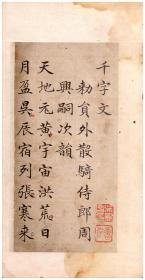 千字文
勑員外散騎侍郎周
興嗣次韻
天地元黃宇宙洪荒日
月盈昃辰宿列張寒来